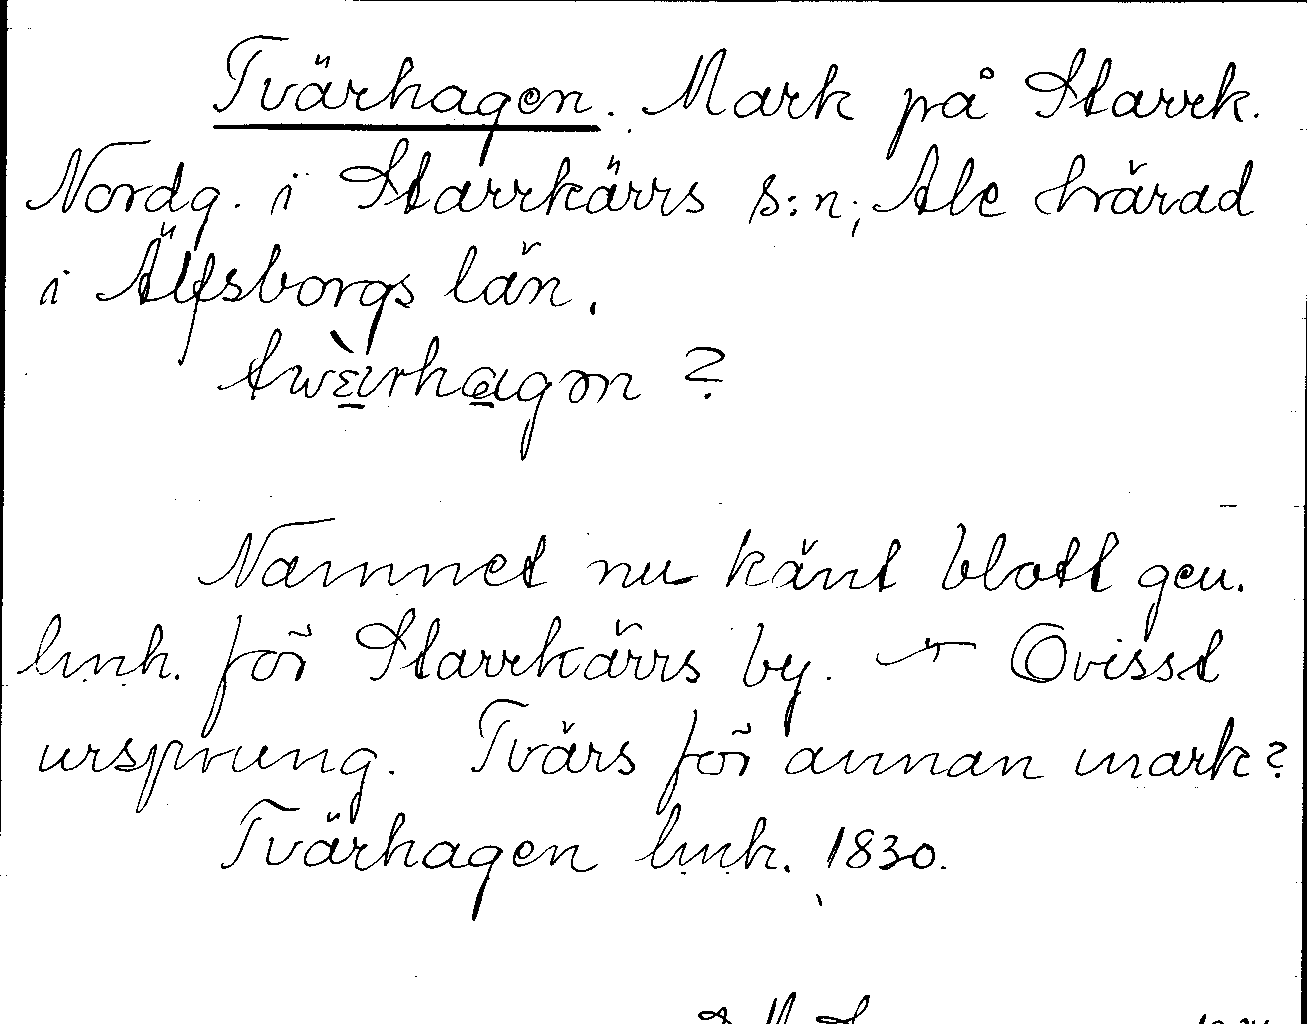 Tvärhagen. Mark på Starrk.
Nordg. i Starrkärrs s:n, Ale härad
i Älfsborgs län.
twὲrhagən ?
Namnet nu känt blott gen.
lmh. för Starrkärrs by. — Ovisst
ursprung. Tvärs för annan mark?
Tvärhagen lmh. 1830.